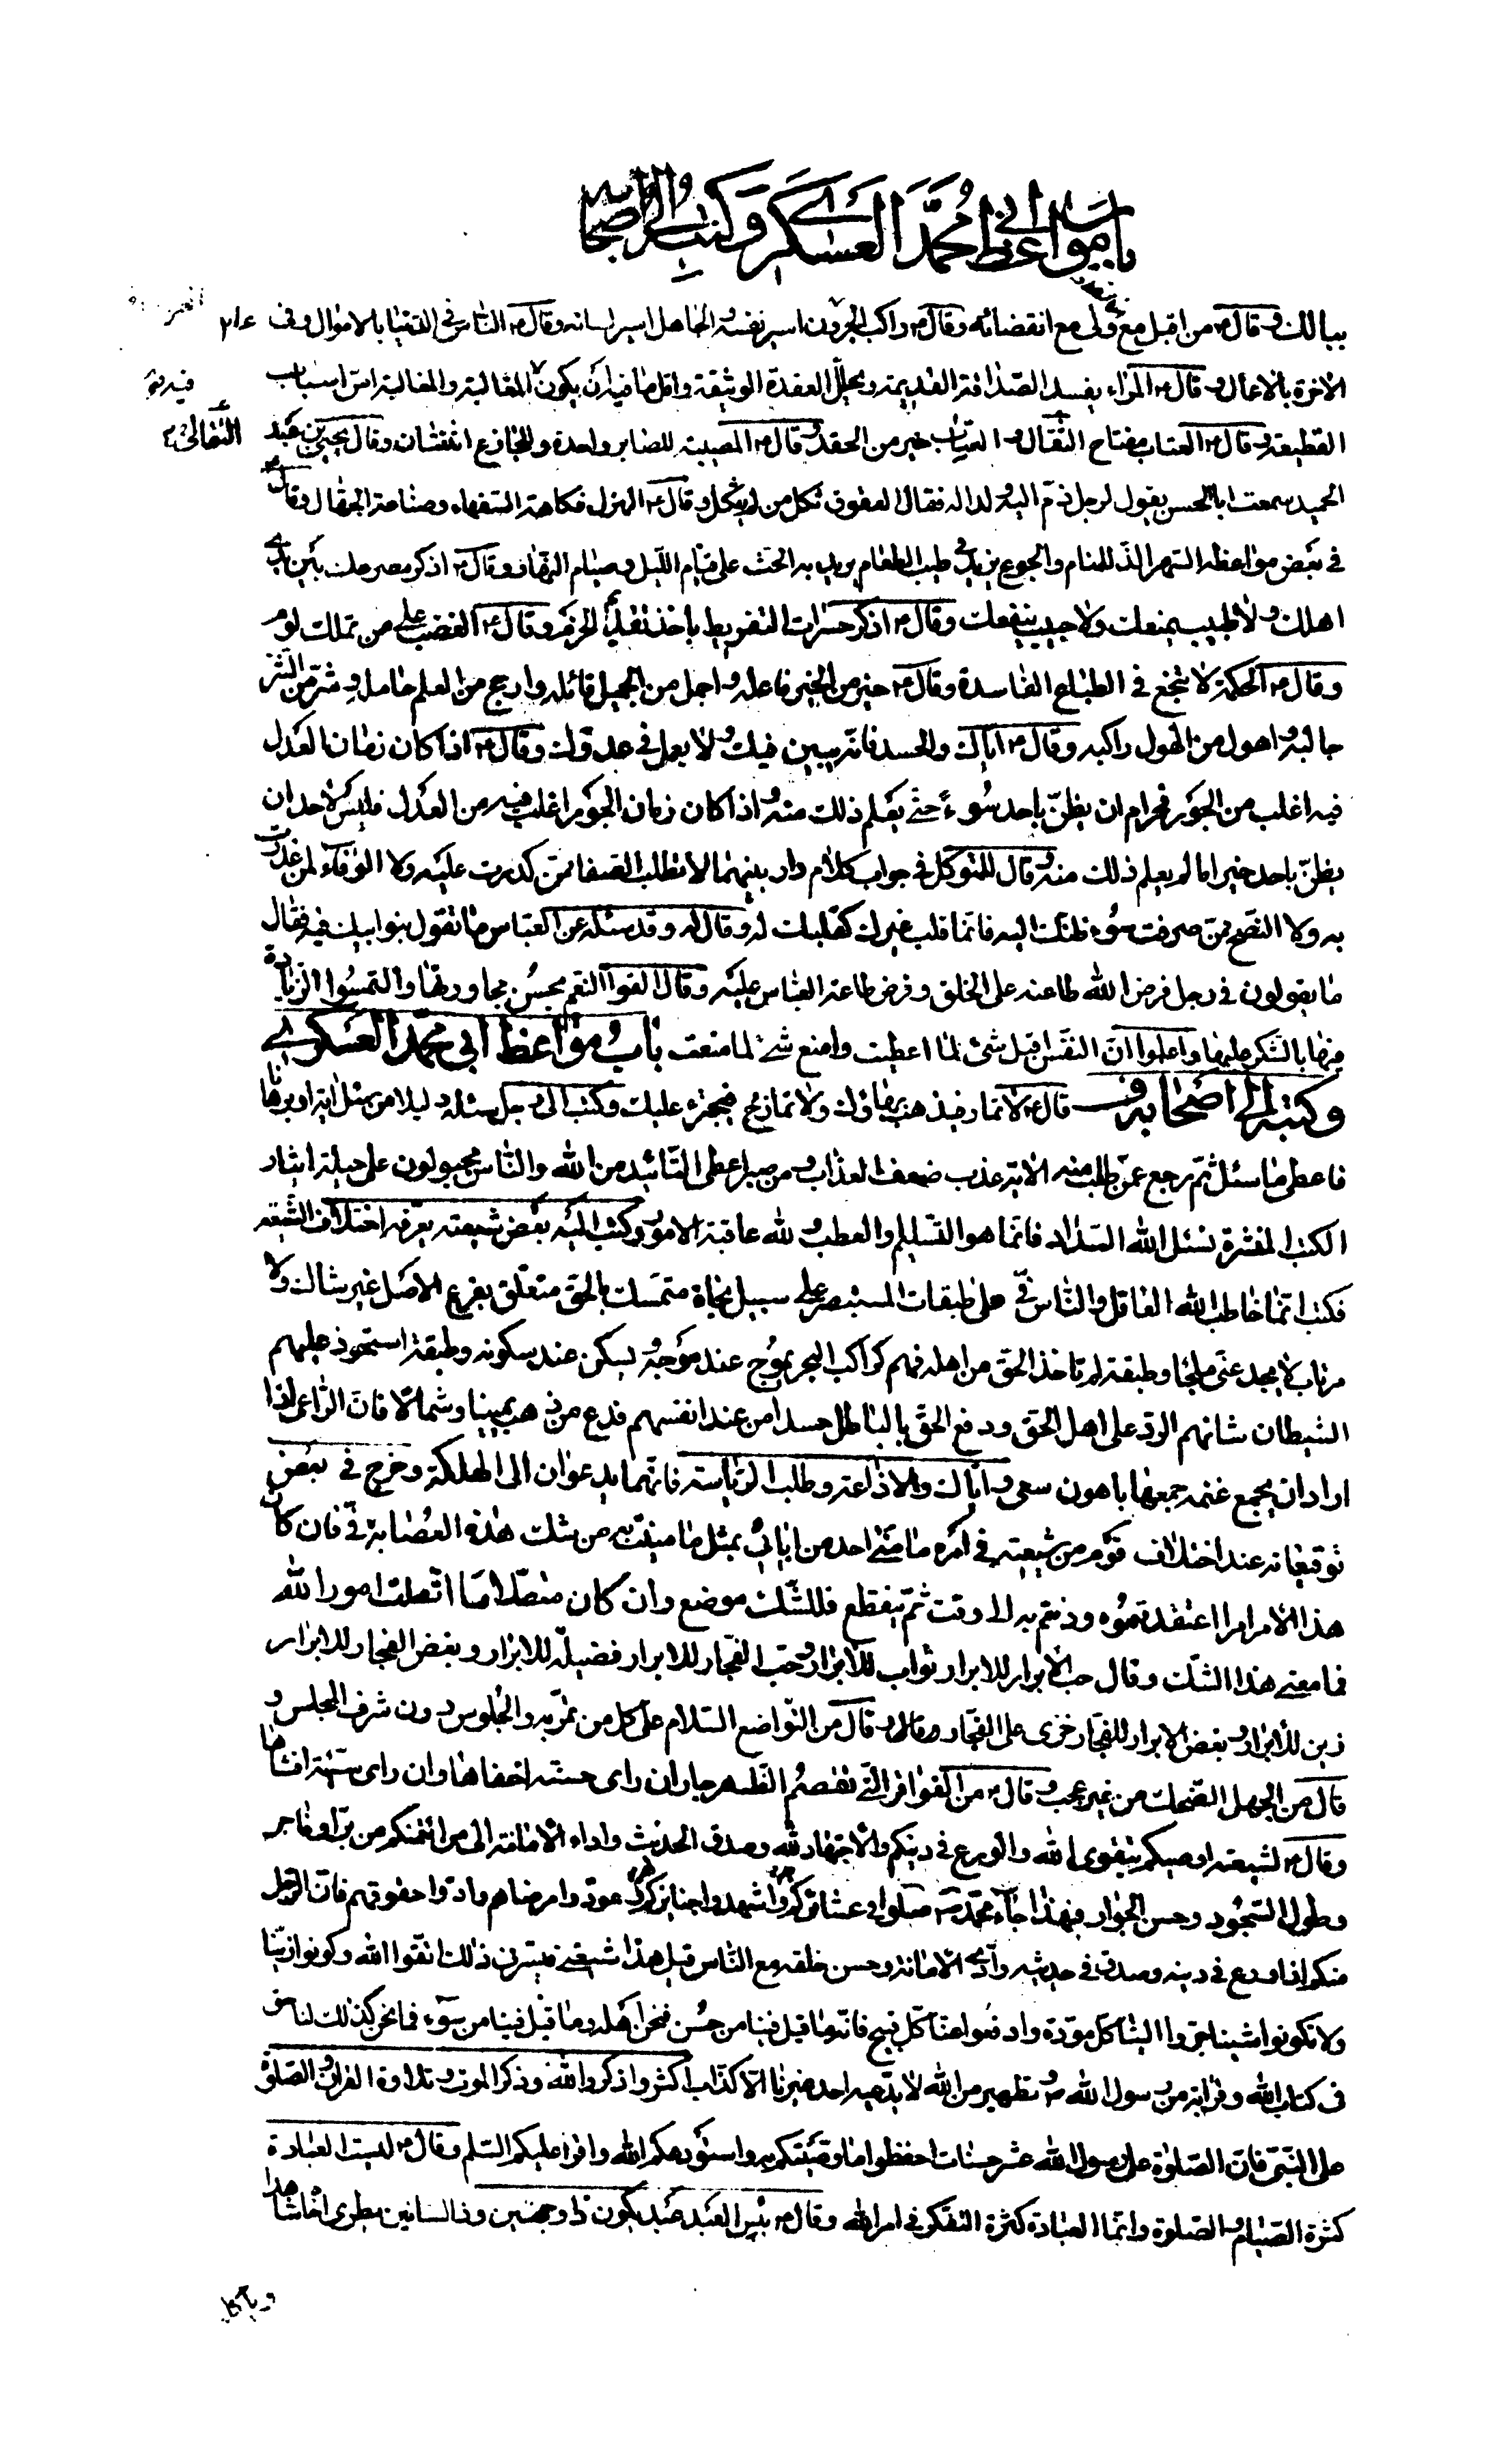 باب مواعظ ابي محمد العسكري وكتبه الى اصحابه
ببالك و قال ع من اقبل مع ولى مع انقضائه وقال ع راكب الحرون اسير نفسه والجاهل اسير لسانه وقال ع الناس في الدنيا بالاموال وفي
الاخرة بالاعمال و قال ع المراء يفسد الصداقة القديمة ويحلل العقدة الوثيقة واقل ما فيه ان يكون المغالبة والمغالبة اس اسباب
القطيعة و قال ع العتاب مفتاح الثقال و العتاب خير من الحقد و قال ع المصيبة للصابر واحدة وللجازع اثنتان وقال يحيى بن عبد
الحميد سمعت ابا الحسن يقول لرجل ذم اليه ولدا له فقال العقوق ثكل من لم يثكل و قال ع الهزل فكاهة السفهاء وصناعة الجهال وقال
في بعض مواعظه السهر الذ للمنام والجوع يزيد في طيب الطعام يريد به الحث على قيام الليل وصيام النهار وقال ع اذكر مصرعك بين يدي
اهلك و لا طبيب يمنعك ولا حبيب ينفعك وقال ع اذكر حسرات التفريط باخذ تقديم الحزم وقال ع الغضب على من تملك لوم
وقال ع الحكمة لا تنجع في الطباع الفاسدة وقال ع خير من الخير فاعله و اجمل من الجميل قائله وارجح من العلم حامله و شر من الشر
جالبه و اهول من الهول راكبه وقال ع اياك والحسد فانه يبين فيك و لا يعمل في عدوك وقال ع اذا كان زمان العدل
فيه اغلب من الجور فحرام ان يظن باحد سوء حتى يعلم ذلك منه و اذا كان زمان الجور اغلب فيه من العدل فليس لاحد ان
يظن باحد خيرا ما لم يعلم ذلك منه و قال للمتوكل في جواب كلام دار بينهما لا تطلب الصفا ممن كدرت عليه ولا الوفاء لمن غدرت
به ولا النصح ممن صرفت سوء ظنك اليه فانما قلب غيرك كقلبك له و قال له وقد سئله عن العباس ما تقول بنو ابيك فيه فقال
ما يقولون في رجل فرض الله طاعته على الخلق و فرض طاعة العباس عليه وقال القوا النعم بحسن مجاورتها والتمسوا الزيادة
منها بالشكر عليها واعلموا ان النفس اقبل شئ لما اعطيت وامنع شئ لما منعت باب مواعظ ابي محمد العسكري
وكتبه الى اصحابه قال ع لا تمار فيذهب بهاؤك ولا تمازح فيجترء عليك وكتب الى رجل سئله دليلا من سئل اية او برهانا
فاعطى ما سئل ثم رجع عمن طلب منه الاية عذب ضعف العذاب و من صبر اعطى التائيد من الله والناس مجبولون على حيلة ايثار
الكتب المنشرة نسئل الله السداد فانما هو التسليم والعطب و لله عاقبة الامور وكتب اليه بعض شيعته يعرفه اختلاف الشيعة
فكتب انما خاطب الله العاقل والناس في على طبقات المستبصر على سبيل نجاة متمسك بالحق متعلق بفرع الاصل غير شاك ولا
مرتاب لا يجد عني ملجا وطبقة لم تاخذ الحق من اهله فهم كراكب البحر يموج عند موجه و يسكن عند سكونه وطبقة استحوذ عليهم
الشيطان شانهم الرد على اهل الحق ودفع الحق بالباطل حسدا من عند انفسهم فدع من ذهب يمينا وشمالا فان الراعي اذا
اراد ان يجمع غنمه جمعها باهون سعي و اياك والاذاعة وطلب الرياسة فانهما يدعوان الى الهلكة وخرج في بعض
توقيعاته عند اختلاف قوم من شيعته في امره ما مني احد من ابائي بمثل ما منيت به من شك هذه العصابة في فان كان
هذا الامر امرا اعتقدتموه ودنتم به الى وقت ثم ينقطع فللشك موضع وان كان متصلا ما اتصلت امور الله
فما معنى هذا الشك وقال حب الابرار للابرار ثواب للابرار و حب الفجار للابرار فضيلة للابرار وبغض الفجار للابرار
زين للابرار و بغض الابرار للفجار خزي على الفجار و قال من التواضع السلام على كل من تمر به والجلوس دون شرف المجلس و
قال من الجهل الضحك من غير عجب و قال ع من الفواقر التي تقصم الظهر جار ان راى حسنة اخفاها وان راى سيئة افشاها
وقال ع لشيعته اوصيكم بتقوى الله والورع في دينكم والاجتهاد لله وصدق الحديث واداء الامانة الى من ائتمنكم من بر او فاجر
وطول السجود وحسن الجوار فبهذا جاء محمد ص صلوا في عشائركم واشهدوا جنائزكم عودوا مرضاهم وادوا حقوقهم فان الرجل
منكم اذا ورع في دينه وصدق في حديثه وادى الامانة وحسن خلقه مع الناس قيل هذا شيعي فيسرني ذلك اتقوا الله وكونوا زينا
ولا تكونوا شينا جروا الينا كل مودة وادفعوا عنا كل قبيح فانه ما قيل فينا من حسن فنحن اهله وما قيل فينا من سوء فما نحن كذلك لنا حق
في كتاب الله وقرابة من رسول الله ص و تطهير من الله لا يدعيه احد غيرنا الا كذاب اكثروا ذكر الله وذكر الموت وتلاوة القران و الصلوة
على النبي فان الصلوة على رسول الله عشر حسنات احفظوا ما وصيتكم به واستودعكم الله واقرا عليكم السلم وقال ع ليست العبادة
كثرة الصيام و الصلوة وانما العبادة كثرة التفكر في امر الله وقال ع بئس العبد عبد يكون ذا وجهين وذا لسانين يطري اخاه شاهدا